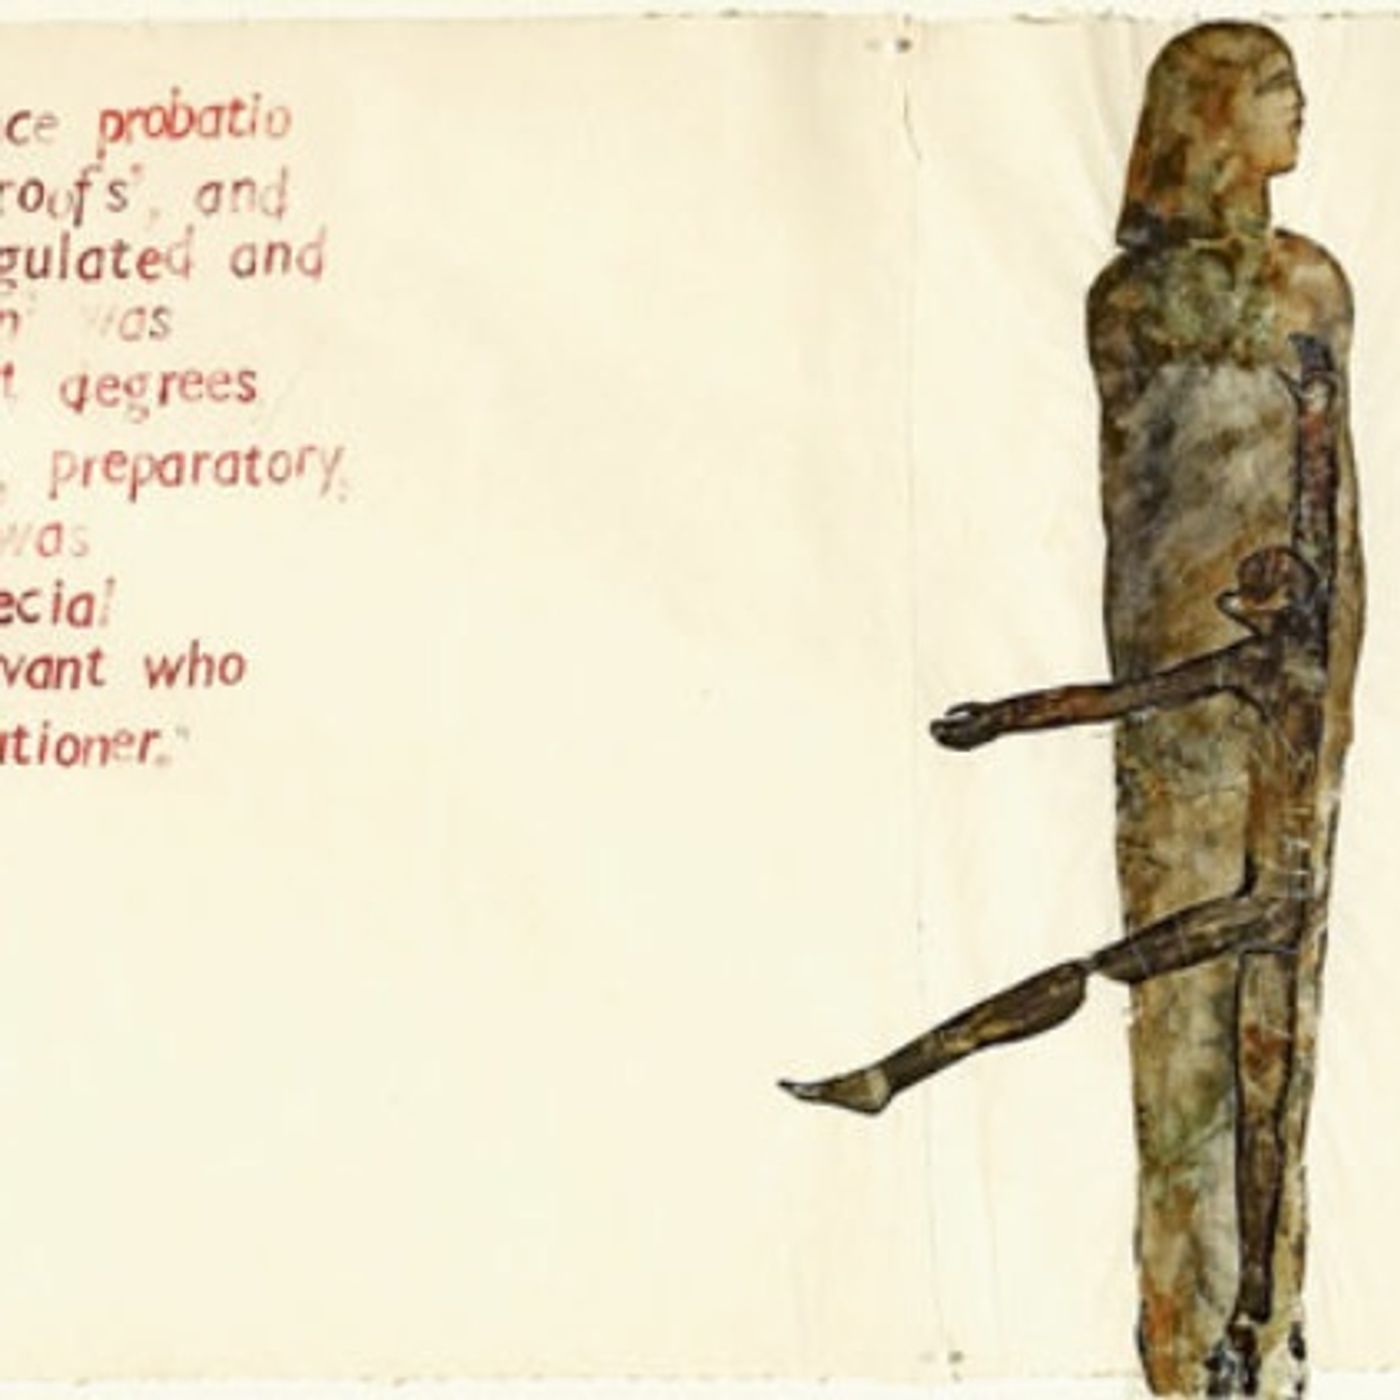 ce probatio
roofs", and
gulated and
n" was
t degrees
, preparatory,
was
ecial
vant who
ationer."